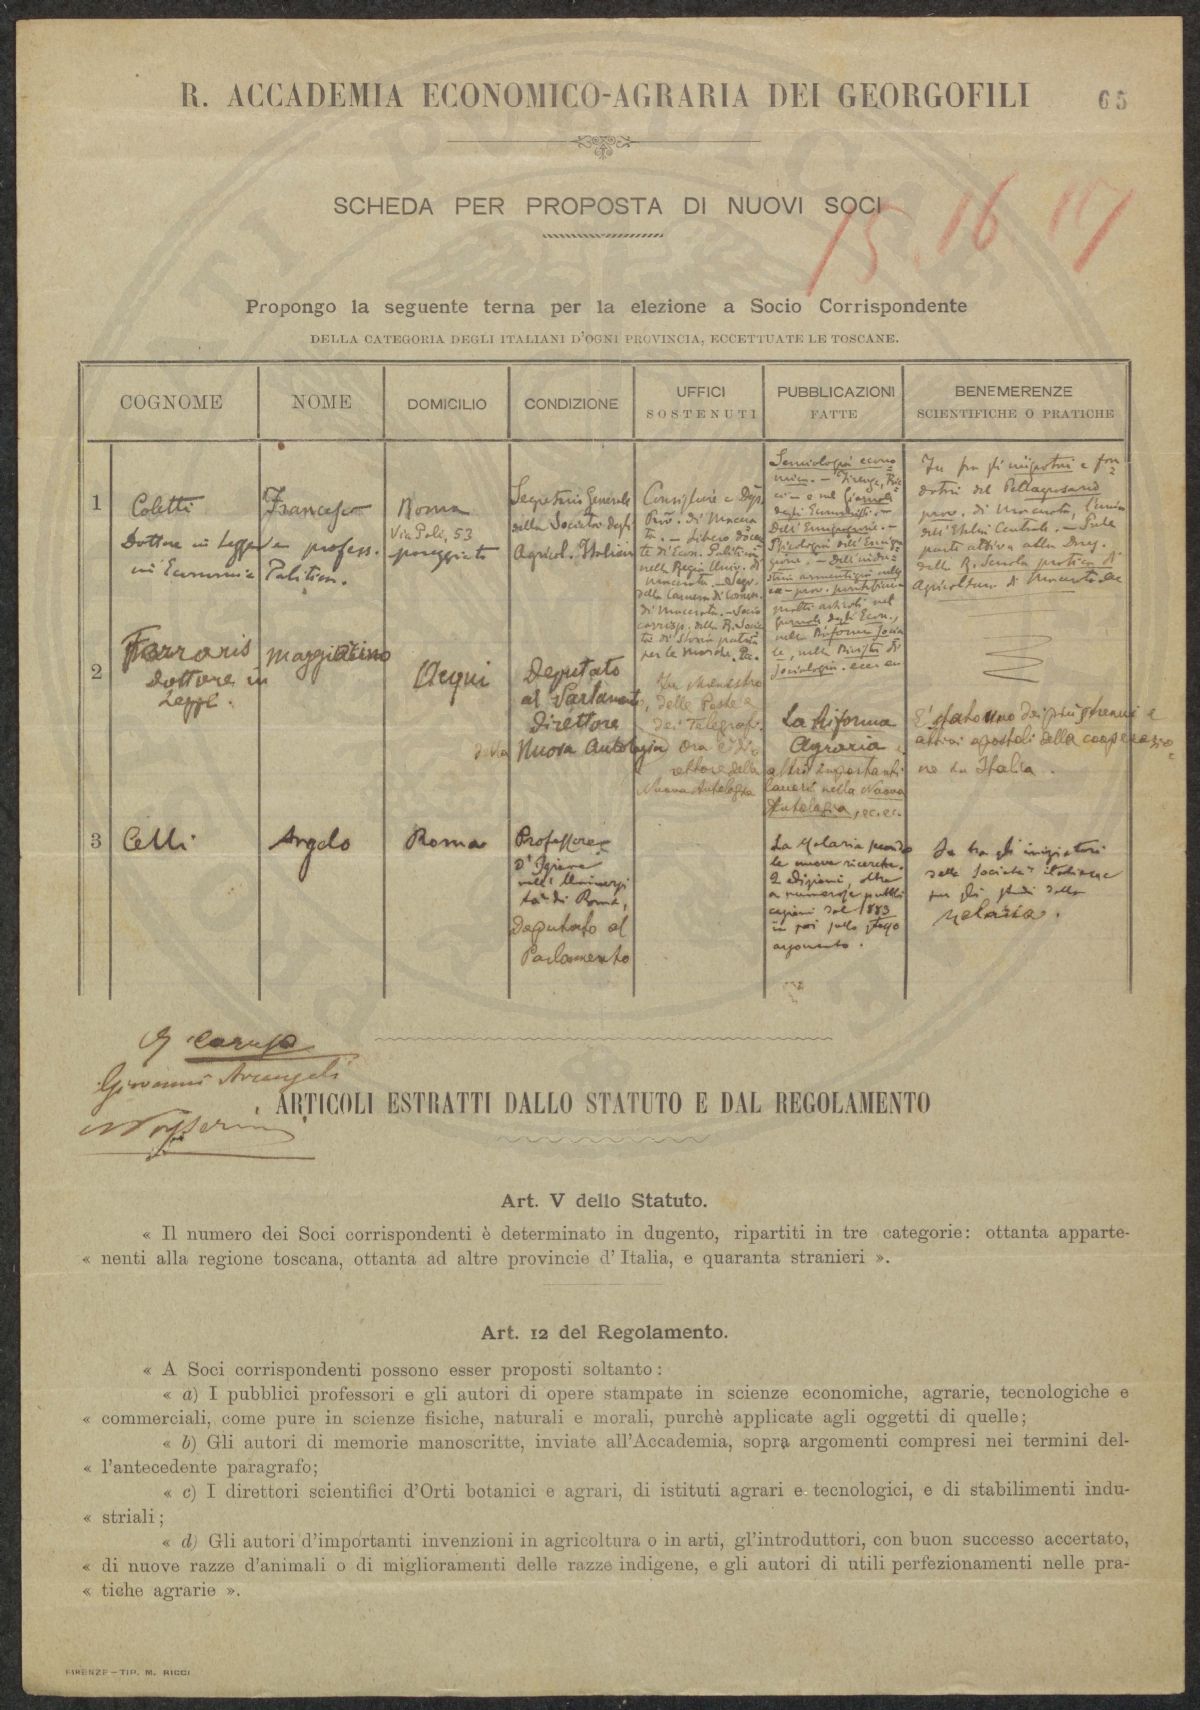 R. ACCADEMIA ECONOMICO-AGRARIA DEI GEORGOFILI
65
SCHEDA PER PROPOSTA DI NUOVI SOCI
15. 16 17
Propongo la seguente terna per la elezione a Socio Corrispondente
DELLA CATEGORIA DEGLI ITALIANI D'OGNI PROVINCIA, ECCETTUATE LE TOSCANE.
COGNOME
NOME
DOMICILIO
CONDIZIONE
UFFICI
SOSTENUTI
PUBBLICAZIONI
FATTE
BENEMERENZE
SCIENTIFICHE O PRATICHE
1
Coletti
Dottore in Legge e profess.
in Economia Politica.
Francesco
Roma
Via Poli, 53
Segretario Generale
della Società degli
Agricol. Italiani
Consigliere e Dep.
Prov. di Macera
ta. - Libero docen
te di Econ. Politica
nella Regia Univ. di
Macerata. - Segr.
della Camera di Comm.
di Macerata. - Socio
corrisp. della R. Socie
tà di Storia patria
per le Marche.
Semiologia econo
mica. -
e nel Giornale
degli Economisti. -
Dell'Emigrazione. -
Psicologia dell'Emigra
zione. - Dell'indu
molti articoli nel
Giornale degli Econ.,
nella Riforma Socia
le, nella Rivista di
Sociologia. ecc. ecc
Fu fra gli iniziatori e fon
datori del Pellagrosario
prov. di Macerata,
parte attiva alla
della R. Scuola pratica di
Agricoltura di Macerata
2
Ferraris
Dottore in
Legge.
Maggiorino
Acqui
Deputato
al Parlamento,
Direttore
della Nuova Antologia
Fu Ministro
delle Poste e
dei Telegrafi.
Ora è Di
rettore della
Nuova Antologia
La Riforma
Agraria e
altri importanti
lavori nella Nuova
Antologia, ec. ec.
E' stato uno dei più strenui e
attivi apostoli della cooperazio
ne in Italia.
3
Celli
Angelo
Roma
Professore
d'Igiene
nell'Universi
tà di Roma,
Deputato al
Parlamento
La Malaria secondo
le nuove ricerche.
2 edizioni, oltre
a numerose pubbli
cazioni dal 1883
in poi sullo stesso
argomento.
Fu tra gli iniziatori
della Società italiana
per gli studi della
Malaria.
Caruso
Giovanni Arcangeli
ARTICOLI ESTRATTI DALLO STATUTO E DAL REGOLAMENTO
Art. V dello Statuto.
« Il numero dei Soci corrispondenti è determinato in dugento, ripartiti in tre categorie: ottanta apparte-
« nenti alla regione toscana, ottanta ad altre provincie d'Italia, e quaranta stranieri ».
Art. 12 del Regolamento.
« A Soci corrispondenti possono esser proposti soltanto:
« a) I pubblici professori e gli autori di opere stampate in scienze economiche, agrarie, tecnologiche e
« commerciali, come pure in scienze fisiche, naturali e morali, purchè applicate agli oggetti di quelle;
« b) Gli autori di memorie manoscritte, inviate all'Accademia, sopra argomenti compresi nei termini del-
« l'antecedente paragrafo;
« c) I direttori scientifici d'Orti botanici e agrari, di istituti agrari e tecnologici, e di stabilimenti indu-
« striali;
« d) Gli autori d'importanti invenzioni in agricoltura o in arti, gl'introduttori, con buon successo accertato,
« di nuove razze d'animali o di miglioramenti delle razze indigene, e gli autori di utili perfezionamenti nelle pra-
« tiche agrarie ».
FIRENZE - TIP. M. RICCI